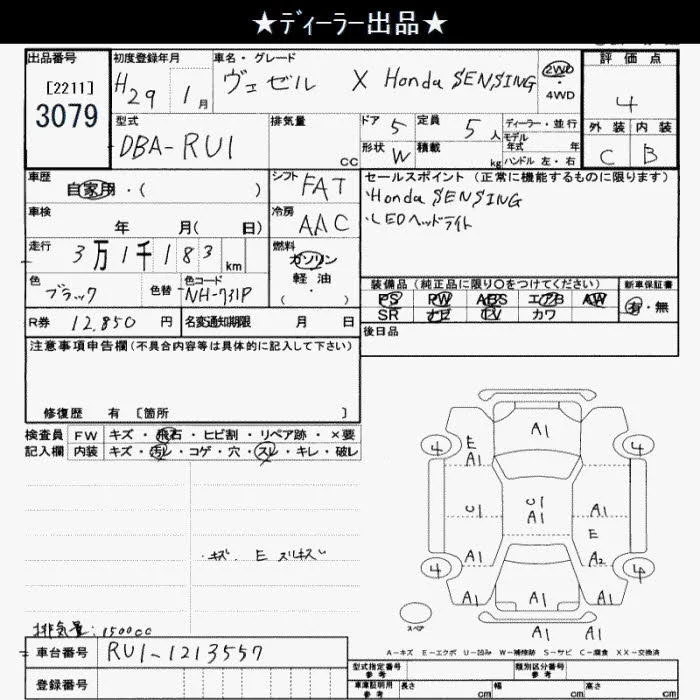 ★ディーラー出品★
出品番号
[2211]
3079
初度登録年月
H29 1月
車名・グレード
ヴェゼル X Honda SENSING
2WD
・
4WD
評価点
4
外装 内装
C B
型式
DBA-RU1
排気量
CC
ドア 5
定員 5人
形状 W
積載 kg
ディーラー・並行
モデル
年式 年
ハンドル 左・右
車歴
自家用・( )
シフト FAT
セールスポイント (正常に機能するものに限ります)
・Honda SENSING
・LEDヘッドライト
車検
年 月( 日)
冷房 AAC
走行
3万1千183
km
燃料
ガソリン
軽油・
( )
色
ブラック
色替
色コード
NH-731P
装備品 (純正品に限り○をつけてください)
PS PW ABS エアB AW
SR ナビ TV カワ
新車保証書
有・無
R券 12,850 円
名変通知期限 月 日
後日品
注意事項申告欄(不具合内容等は具体的に記入して下さい)
修復歴 有 [箇所 ]
検査員
記入欄
FW キズ・飛石・ヒビ割・リペア跡・×要
内装 キズ・汚レ・コゲ・穴・スレ・キレ・破レ
・キズ E スルキズ
A1
4
E
A1
4
C1
C1
A1
A1
E
A1
A2
4
4
A1
A1
A1
A1
A1
スペア
排気量:1500cc
A-キズ E-エクボ U-凹み W-補修跡 S-サビ C-腐食 XX-交換済
車台番号 RU1-1213557
登録番号
型式指定番号
参考
類別区分番号
参考
車庫証明用
参考
長さ cm 幅 cm 高さ cm